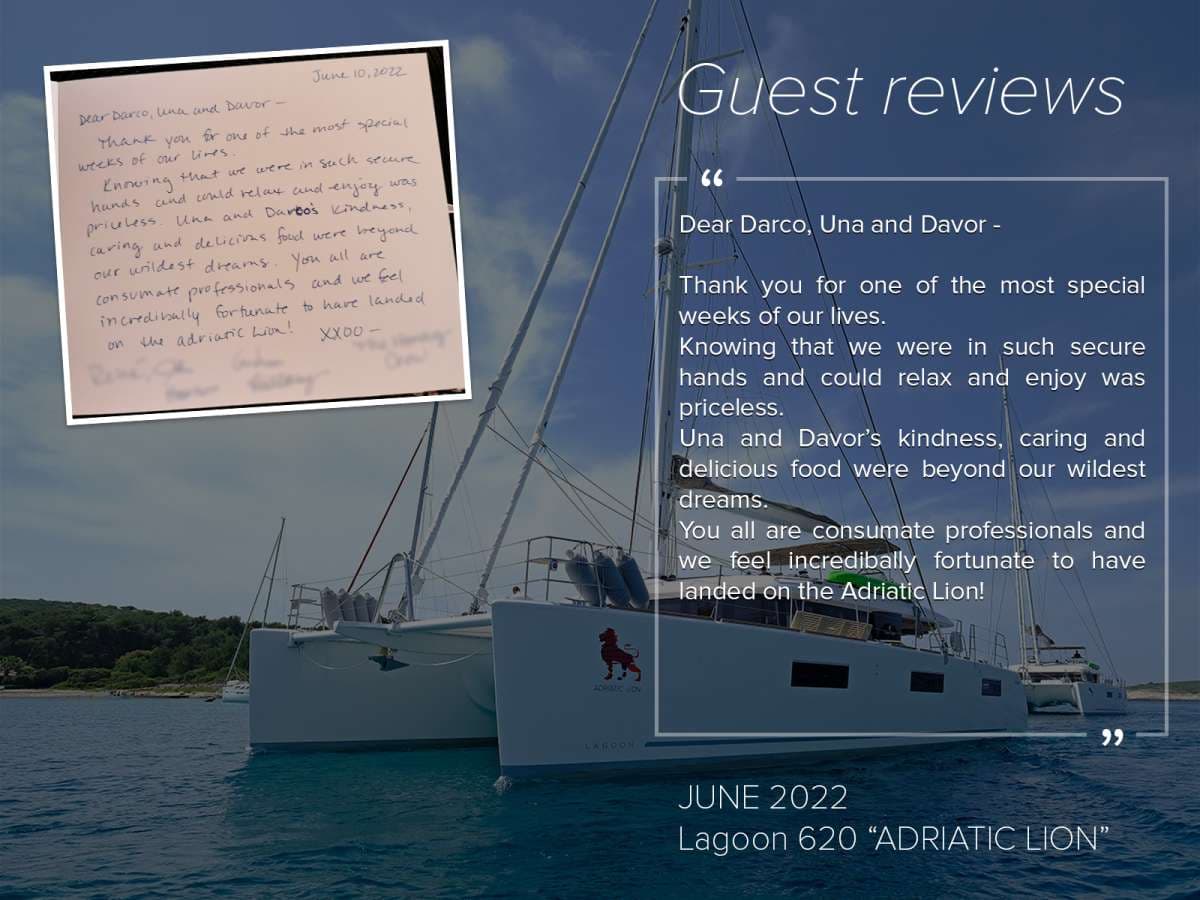 June 10, 2022
Dear Darco, Una and Davor —
Thank you for one of the most special
weeks of our lives.
Knowing that we were in such secure
hands and could relax and enjoy was
priceless. Una and kindness,
caring and delicious food were beyond
our wildest dreams. You all are
consumate professionals and we feel
incredibally fortunate to have landed
on the adriatic Lion! XXOO —
Guest reviews
“
Dear Darco, Una and Davor -
Thank you for one of the most special
weeks of our lives.
Knowing that we were in such secure
hands and could relax and enjoy was
priceless.
Una and Davor’s kindness, caring and
delicious food were beyond our wildest
dreams.
You all are consumate professionals and
we feel incredibally fortunate to have
landed on the Adriatic Lion!
”
ADRIATIC LION
LAGOON
JUNE 2022
Lagoon 620 “ADRIATIC LION”